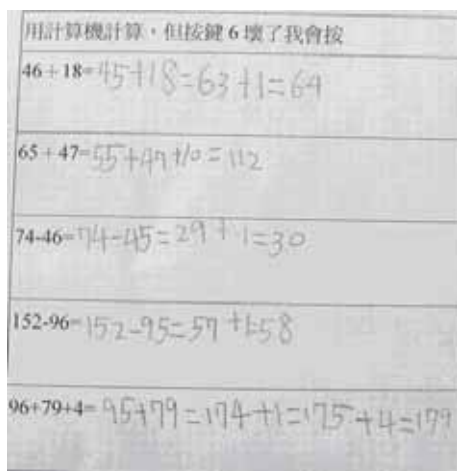 用計算機計算，但按鍵 6 壞了我會按
46+18=45+18=63+1=64
65+47=55+47+10=112
74-46=74-45=29+1=30
152-96=152-95=57+1=58
96+79+4=95+79=174+1=175+4=179